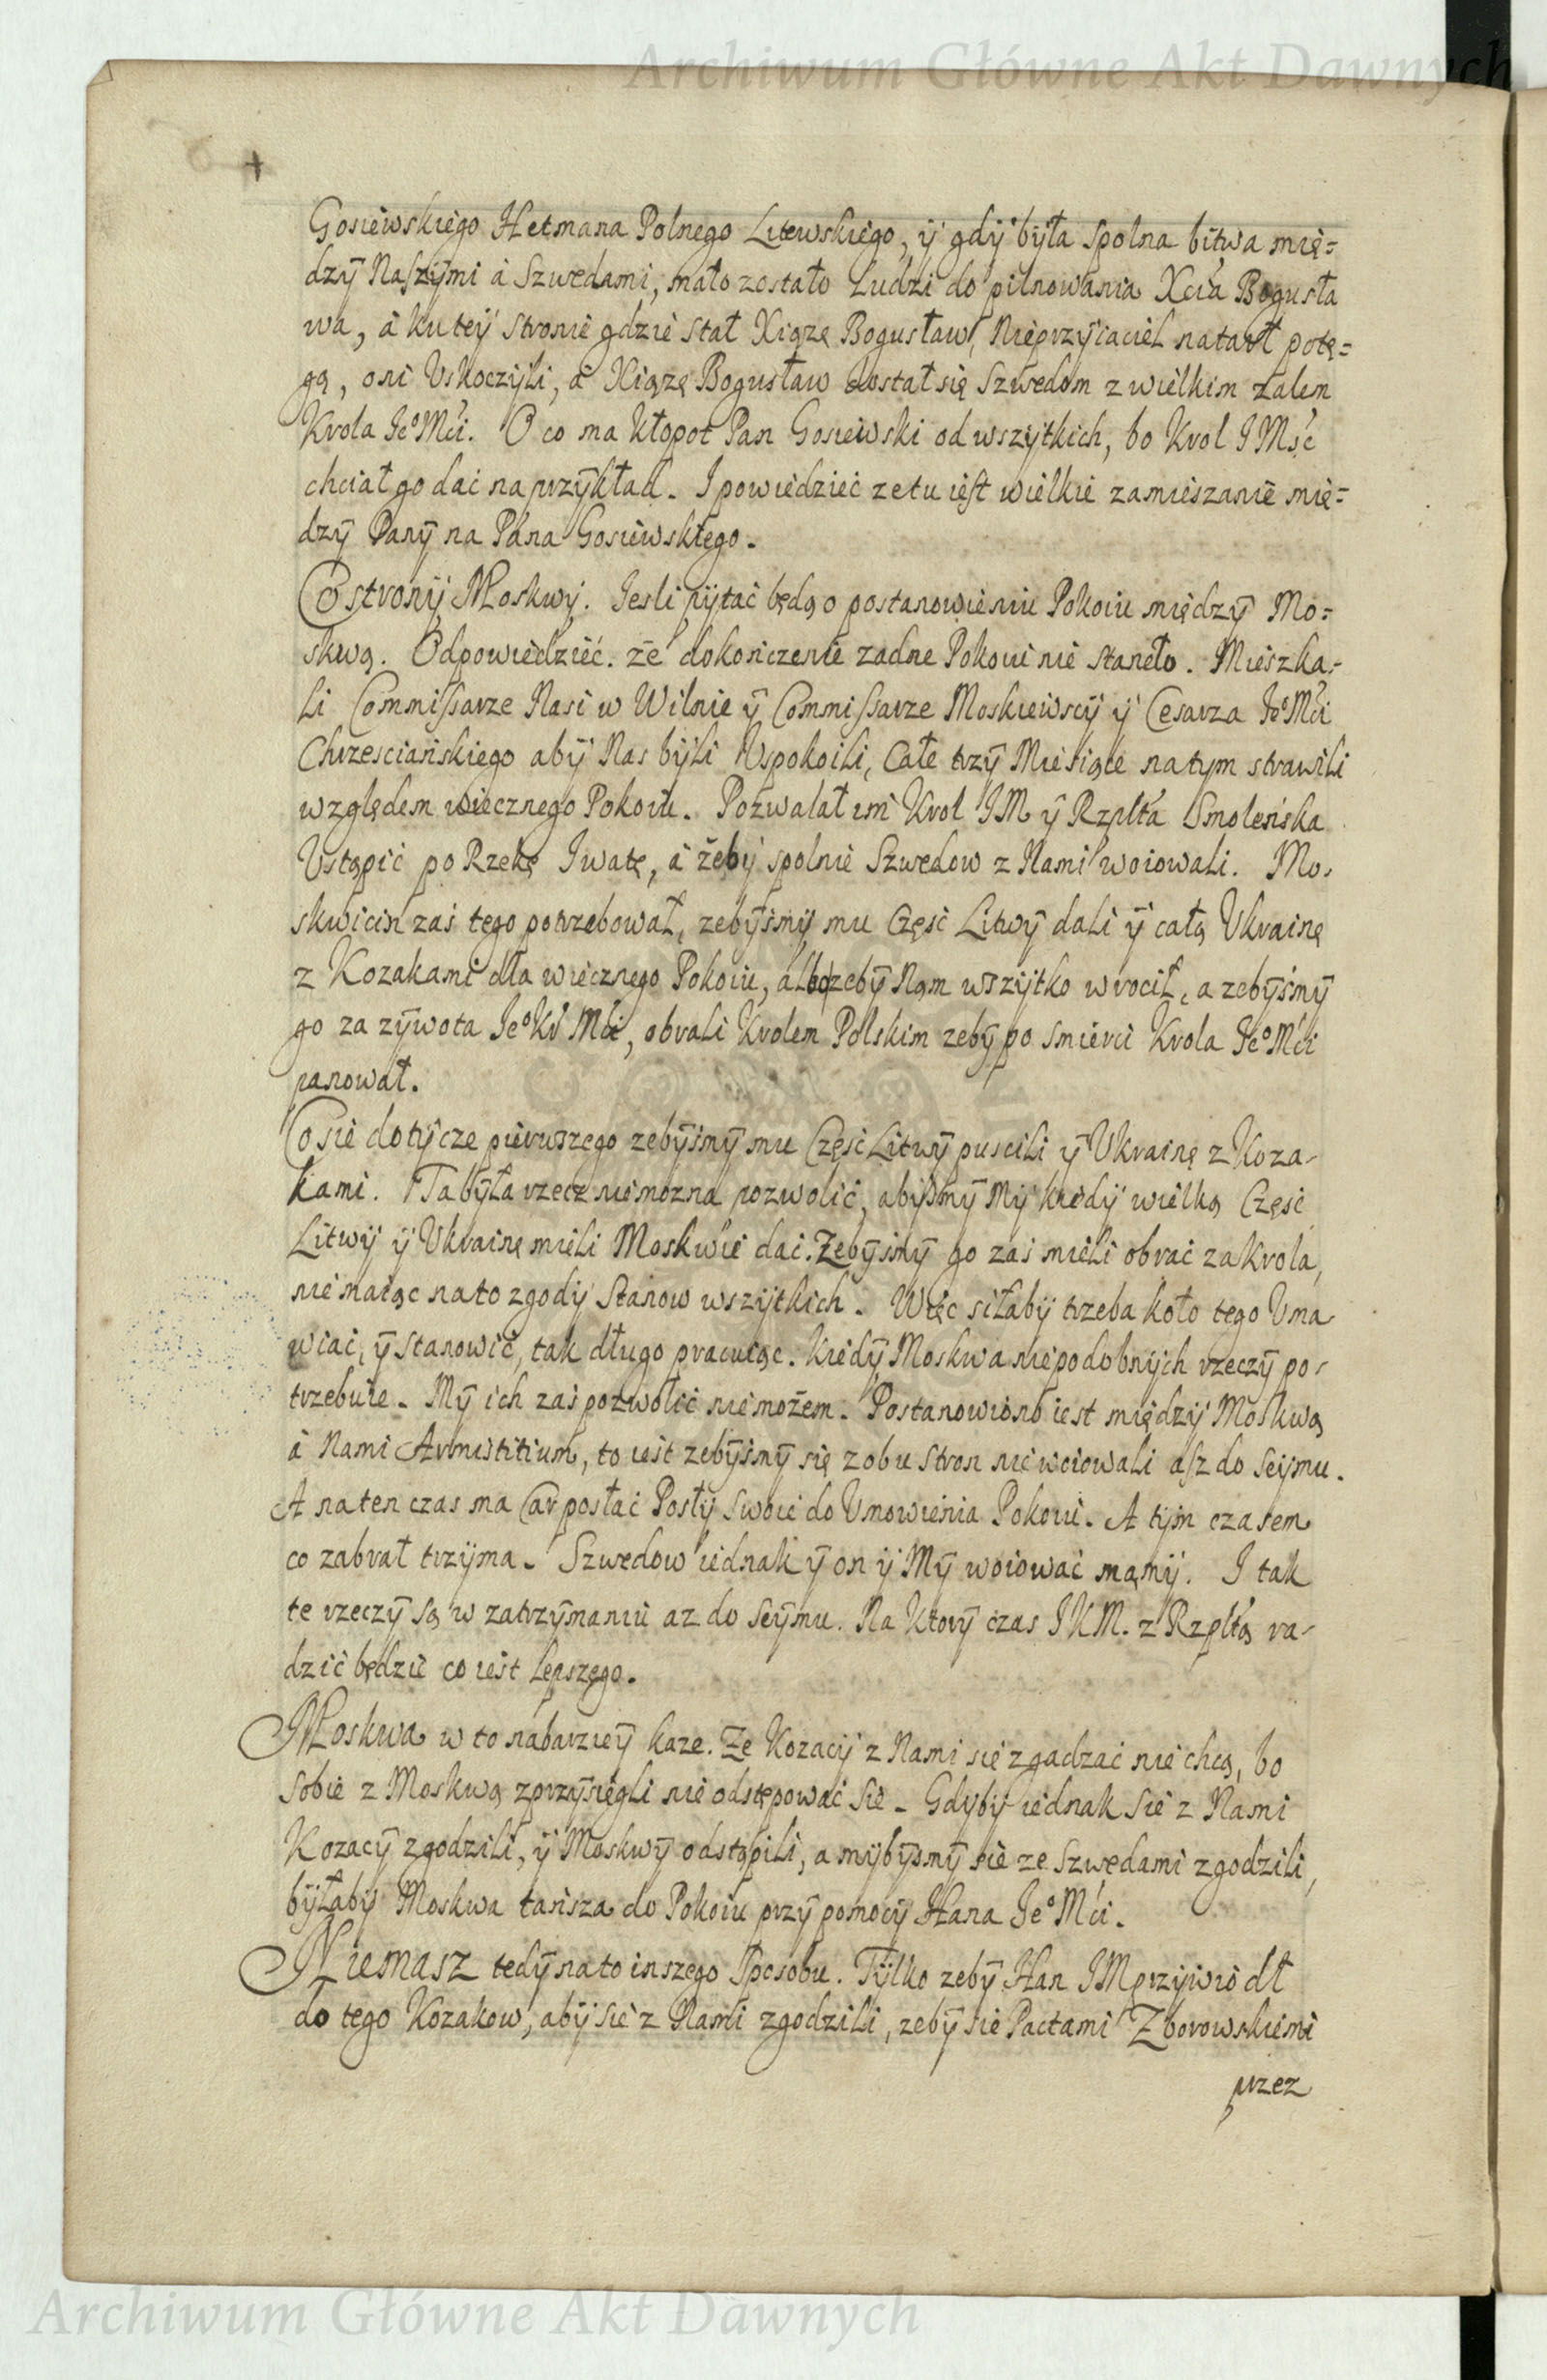 Archiwum Główne Akt Dawnych
Gosiewskiego Hetmana Polnego Litewskiego, ÿ gdÿ bÿła spolna bitwa mię=
dzÿ Naszÿmi à Szwedami, mało zostało Ludzi do pilnowania Xcia Bogusła
wa, à ku teÿ stronie gdzie stał Xiązę Bogusław, Nieprzÿiaciel natarł potę=
gą, oni Vskoczÿli, à Xiązę Bogusław dostał się Szwedom z wielkim zalem
Krola Ieº Mci. O co ma kłopot Pan Gosiewski od wszÿtkich, bo Krol I Mść
chciał go dać na przÿkład. I powiedzieć ze tu iest wielkie zamieszanie mię=
dzÿ Panÿ na Pana Gosiewskiego.
Co stronÿ Moskwÿ. Iesli pÿtać będą o postanowieniu Pokoiu międzÿ Mo=
skwą. Odpowiedzieć. że dokończenie zadne Pokoiu nie stanęło. Mieszka-
li Commissarze Nasi w Wilnie ÿ Commissarze Moskiewscÿ ÿ Cesarza Ieº Mci
Chrzesciańskiego abÿ Nas bÿli Vspokoili, Całe trzÿ Miesiące na tym strawili
względem wiecznego Pokoiu. Pozwalał im Krol IM ÿ Rzplta Smoleńska
Vstąpić po Rzekę Iwatę, à żebÿ spolnie Szwedow z Nami woiowali. Mo-
skwicin zaś tego potrzebował, zebÿsmÿ mu Część Litwÿ dali ÿ całą Vkrainę
z Kozakami dla wiecznego Pokoiu, albo zebÿ Nam wszÿtko wrocił, a zebÿśmÿ
go za zÿwota Ieº Kr Mci, obrali Krolem Polskim zebÿ po smierci Krola Ieº Mci
panował.
Co sie dotÿcze pierwszego zebÿsmÿ mu Część Litwÿ puscili ÿ Vkrainę z Koza-
kami. Ta bÿła rzecz nie mozna pozwolić, abÿsmÿ Mÿ kiedÿ wielką Część
Litwÿ ÿ Vkrainę mieli Moskwie dać. Zebÿsmÿ go zaś mieli obrać za Krola,
nie maiąc na to zgodÿ Stanow wszÿtkich. Więc siłabÿ trzeba koło tego Vma
wiać, ÿ stanowić, tak długo pracuiąc. Kiedÿ Moskwa niepodobnÿch rzeczÿ po-
trzebuie. Mÿ ich zaś pozwolić nie możem. Postanowiono iest międzÿ Moskwą
à Nami Armistitium, to iest zebÿsmÿ się z obu stron nie woiowali asz do Seÿmu.
A na ten czas ma Car posłać Posłÿ swoie do Vmowienia Pokoiu. A tÿm czasem
co zabrał trzÿma. Szwedow iednak ÿ on ÿ Mÿ woiować mamÿ. I tak
te rzeczÿ są w zatrzÿmaniu az do Seÿmu. Na ktorÿ czas I K M. z Rzpltą ra-
dzić będzie co iest Lepszego.
Moskwa w to nabarzieÿ kaze. Ze Kozacÿ z Nami się zgadzać nie chcą, bo
sobie z Moskwą zprzÿsięgli nie odstępować sie. Gdÿbÿ iednak sie z Nami
Kozacÿ zgodzili, ÿ Moskwÿ odstąpili, a mÿbÿsmÿ sie ze Szwedami zgodzili,
bÿłabÿ Moskwa tańsza do Pokoiu przÿ pomocÿ Hana Ieº Mci.
Niemasz tedÿ na to inszego sposobu. Tÿlko zebÿ Han IM przÿwiodł
do tego Kozakow, abÿ sie z Nami zgodzili, zebÿ sie Pactami Zborowskiemi
przez
Archiwum Główne Akt Dawnych